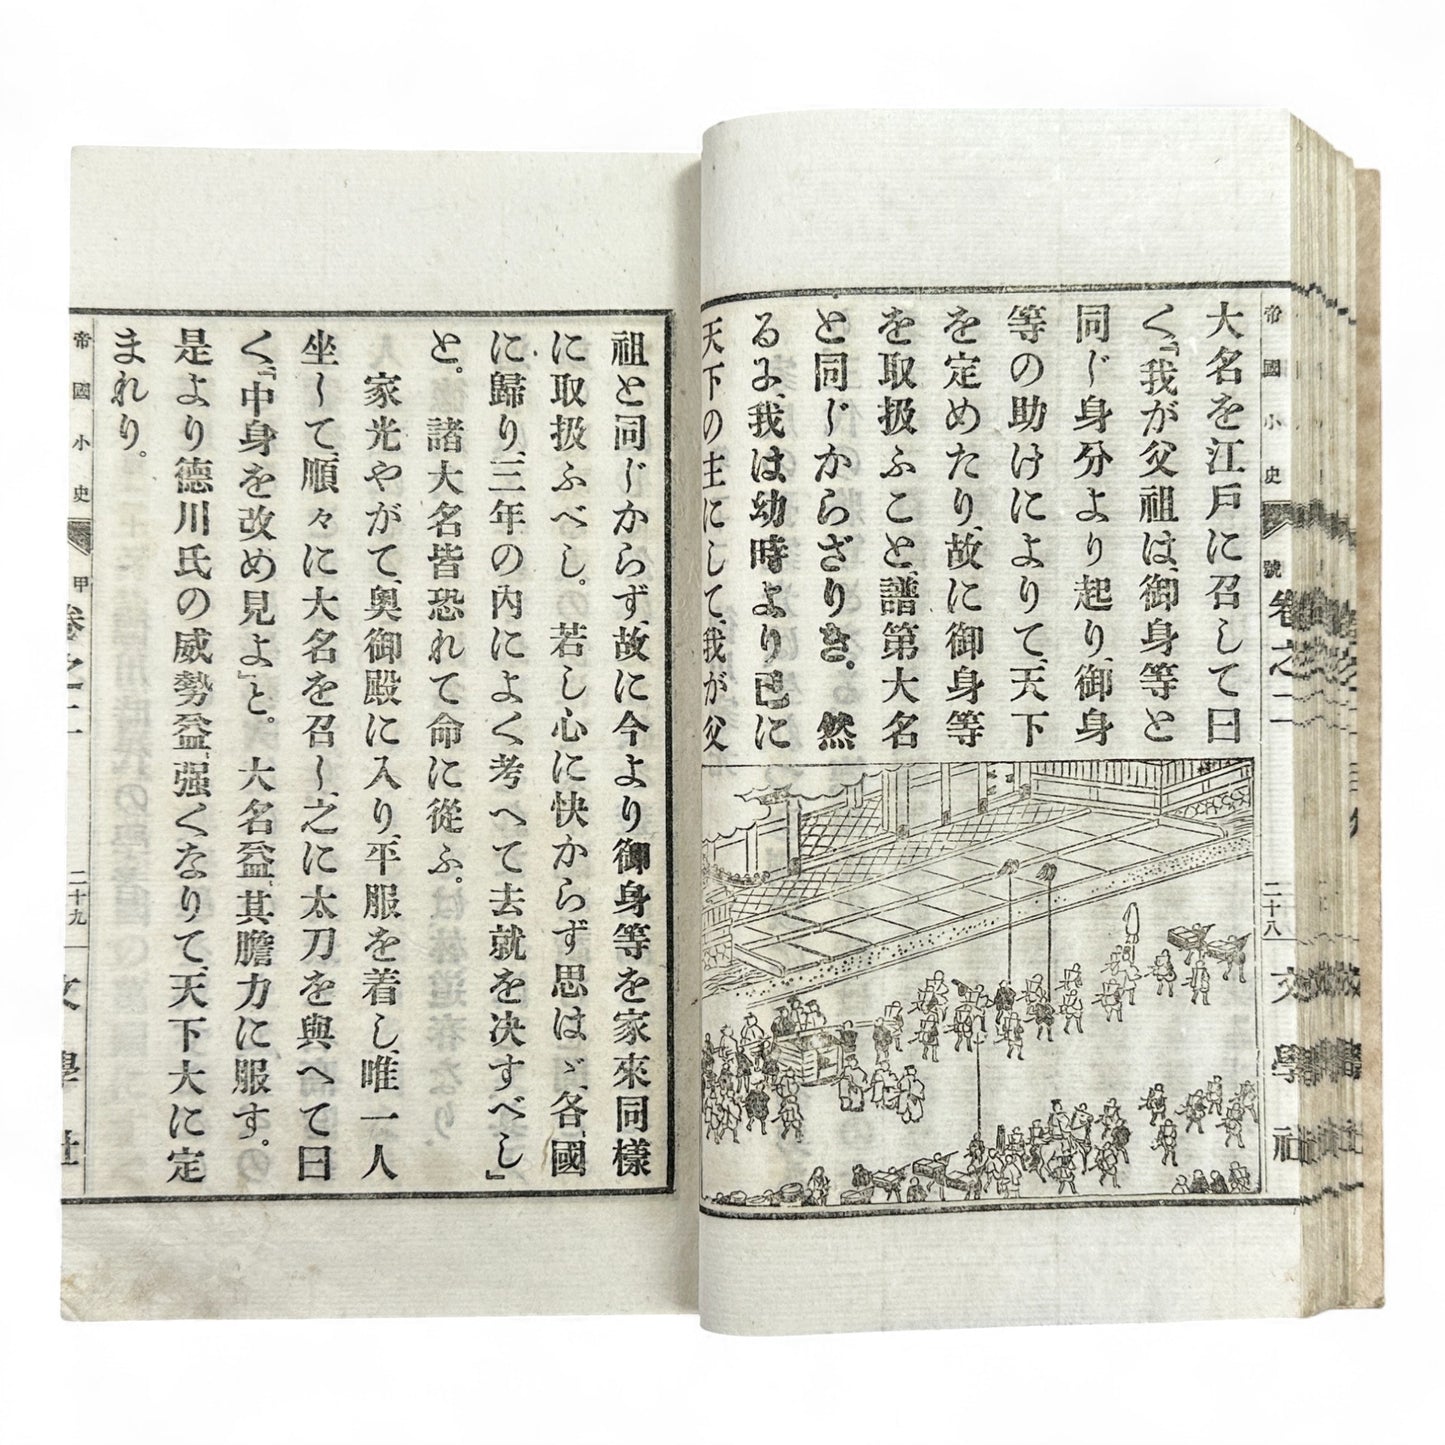 帝國小史
號
卷之二
二十八
文學社
大名を江戸に召して曰
く、『我が父祖は、御身等と
同じ身分より起り、御身
等の助けによりて、天下
を定めたり、故に御身等
を取扱ふこと、譜第大名
と同じからざりき。然
るに、我は幼時より已に
天下の主にして、我が父
祖と同じからず、故に今より御身等を家來同樣
に取扱ふべし。若し心に快からず思はゞ、各國
に歸り、三年の内によく考へて去就を決すべし』
と。諸大名皆恐れて命に從ふ。
家光やがて、奥御殿に入り、平服を着し、唯一人
坐して、順々に大名を召し、之に太刀を與へて曰
く、『中身を改め見よ』と。大名益、其膽力に服す。
是より德川氏の威勢益、强くなりて、天下大に定
まれり。
帝國小史
甲
卷之二
二十九
文學社